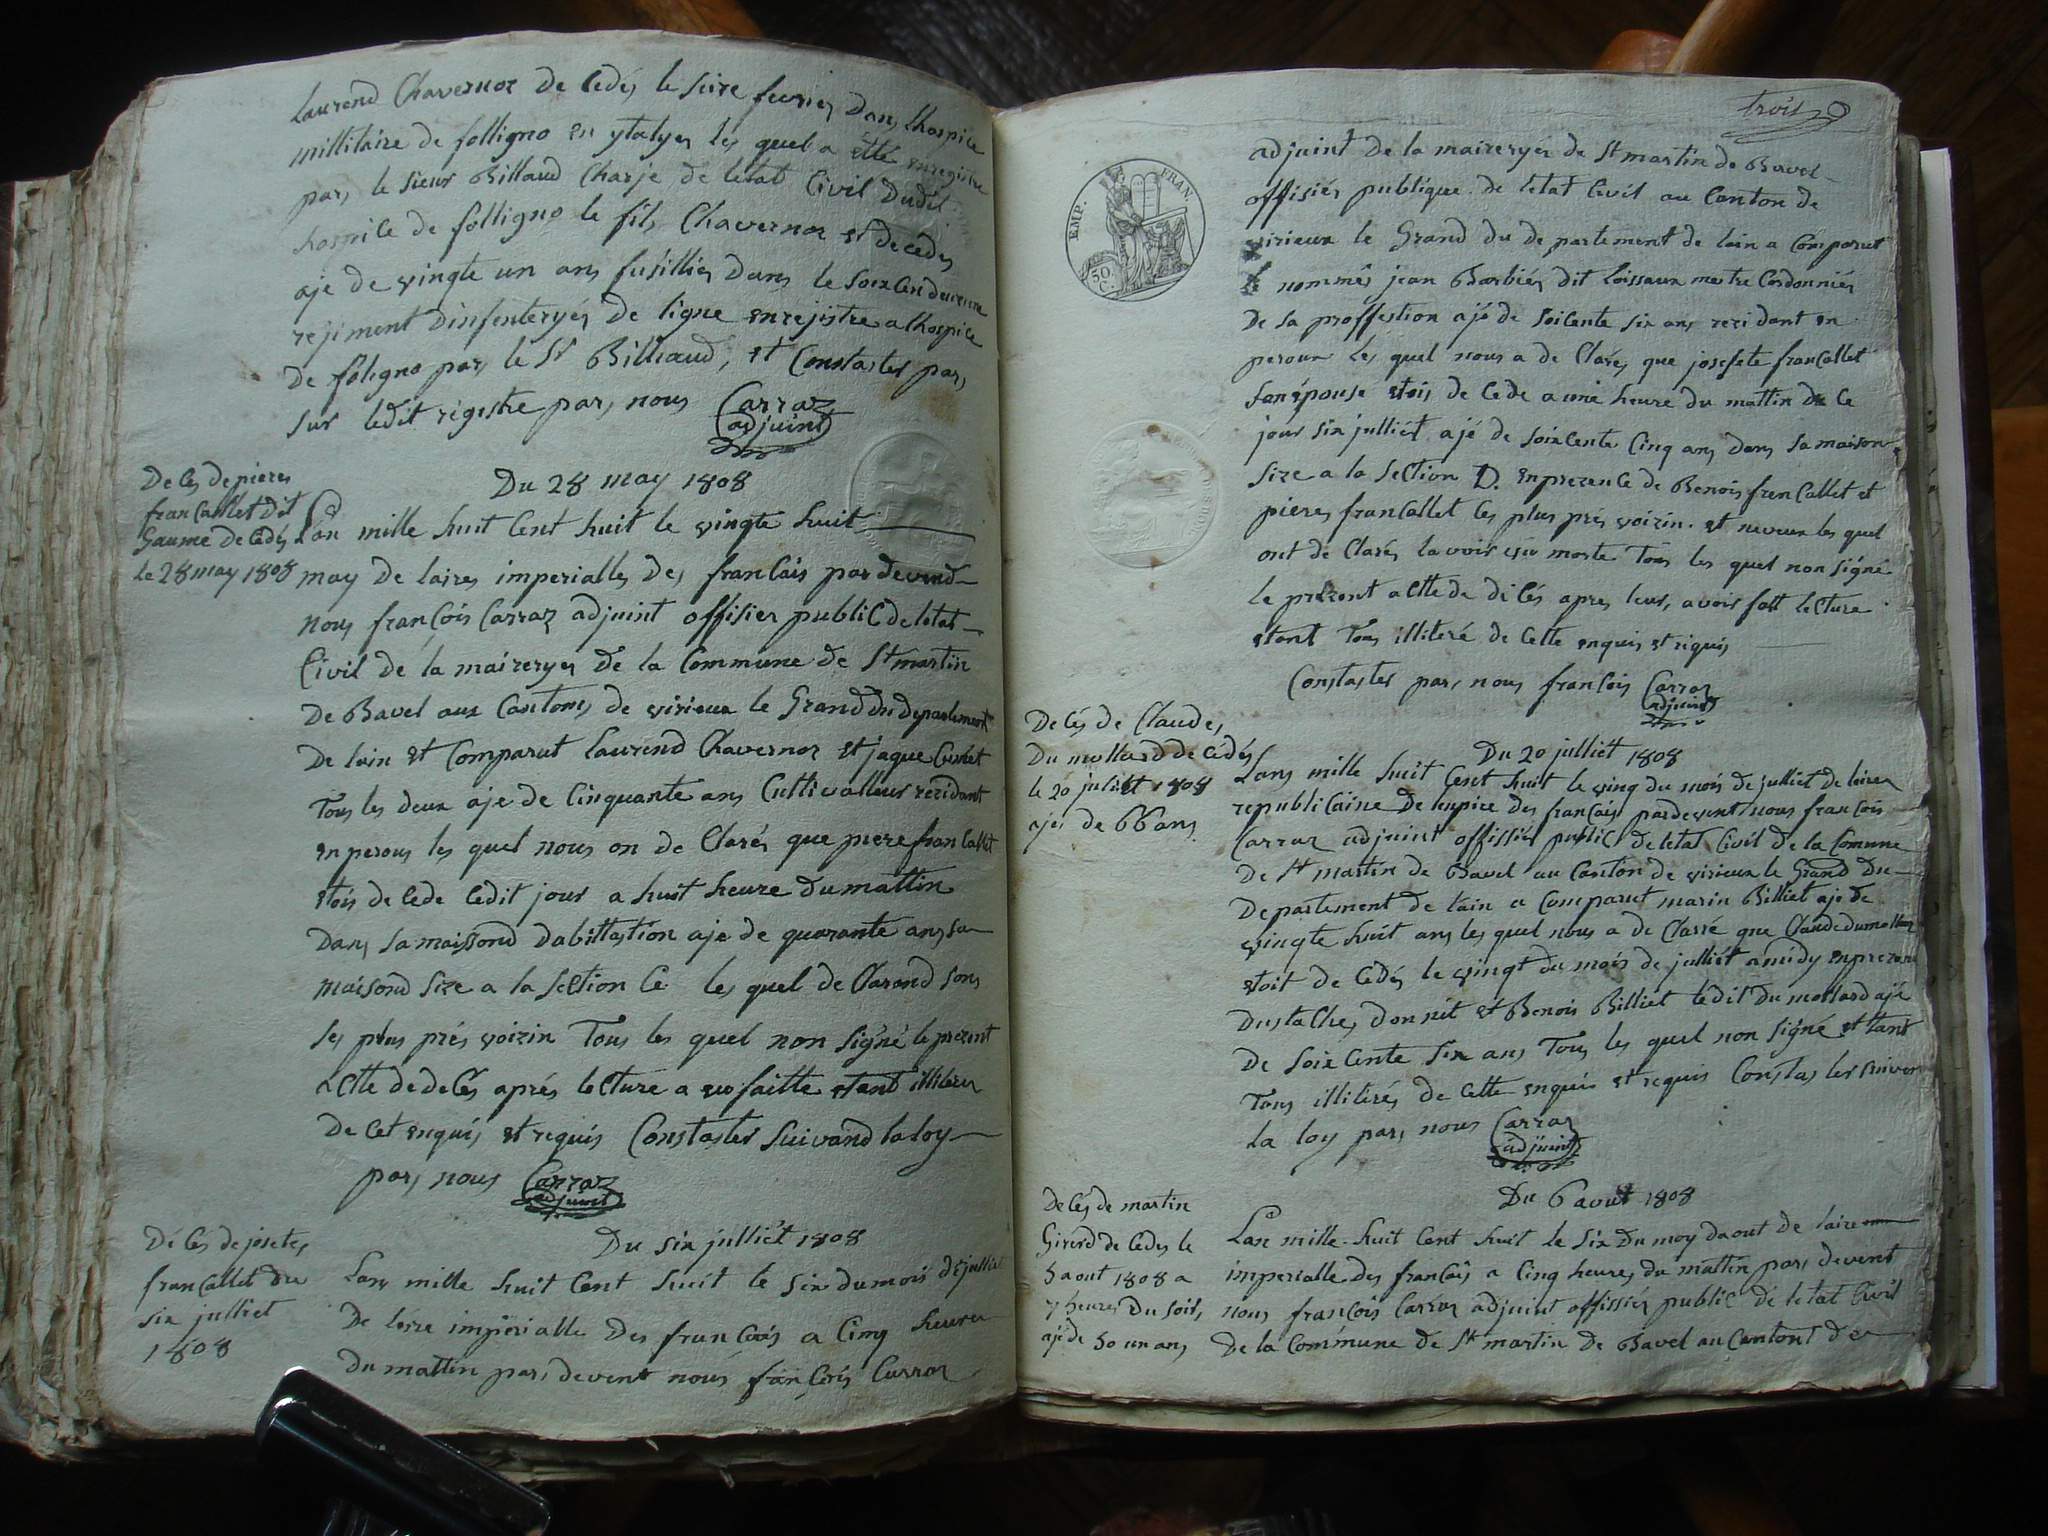 Laurend Chavernoz de Cedés le seize fevrier Dans lhospice
millitaire de folligno en ytalyer les quel a etté enregistre
par, le sieur Billaud Charje de letat Civil Dudit
hospice de folligno le fils, Chavernoz et decédes
aje de vingte un ans fusillier Dans le Soixcenduxieme
rejiment Dinfenteryér De ligne enrejistre a lhospice
de foligno par, le Sr Billiaud, et Constaster par,
sur ledit régestre par, nous Carraz
adjuint
De Cés de pieres
francallet dit
Gaume de Cédés
le 28 may 1808
Du 28 may 1808
Lan mille huit Cent huit le vingte huit
may De laires imperialles Des francais par devend
nous francois Carraz adjuint offisier public de letat
Civil de la maireryer de la Commune de St martin
De Bavel aux Cantons de virieux le Grand Du departement
De lain et Comparut Laurend Chavernoz et jaque
Tous les deux aje de Cinquante ans Culltivalleur rezidant
en perous les quel nous on de Clarés que piere francallet
etois de Cede Cedit jour a huit heure du mattin
Dans sa maissond dabittastion aje de quarante ans sa
maisond size a la section C les quel de Clarand sons
ses plus prés voizin Tous les quel non signé le prezent
actte de deCés aprés lecture a eux faitte etant illiterer
de Cet enquis et requis Constaster suivand la loy
par, nous Carraz
adjuint
Dé Ces de josetes
francallet du
six julliet
1808
Du six julliét 1808
Lans mille huit Cent huit le six du mois dejulliet
De lerre impérialle Des francais a Cinq heures
du mattin par, devent nous francois Carraz
trois
EMP. FRAN.
50 C.
adjuint de la maireryér de St martin de Bavel
offisiér publique de letat Civil au Canton de
virieux le Grand du departement de lain a Comparut
le nommés jean Barbiér dit Loissaux metre Cordonniér
De sa proffestion ajé de soicente six ans rezidant en
peroux les quel nous a de Clares, que josefete francallet
son épouse etois de Cede a une heure du mattin de Ce
jour six julliét ajé de soixcente Cinq ans dans sa maison
size a la section D. en prezence de Benois francallet et
pieres francallet les plus prés voizin et neveux les quel
ont de Clarés lavoir vu morte Tous les quel non signé
le prezent actte de diCés apres leur, avois fait lecture
etant Tous illiteré de Cette enquis et riquis
Constaster par, nous francois Carraz
adjuint
De Cés de Claudes
Du mollard de Cédés
le 20 julliet 1808
ajer de 66 ans
Du 20 julliét 1808
Lans mille huit Cent huit le ving du mois de julliet de lairer
republicaine De lenpire des francais pardevent nous francois
Carraz adjuint offissiér public de letat Civil de la Comune
De St martin de Bavel au Canton de virieux le Grand Du
Departement de lain a Comparut marin Billiet aje de
vingte huit ans les quel nous a de Clarré que Claude dumollar
etoit de Cédés le vingt du mois de julliét a midy enprezan
Dustaches donnét et Benois Billiet ledit Du mollard ajé
De soixcente six ans Tous les quel non signé ettant
Tous illitérés de Cette enquis et requis Constaster suivan
la loy par, nous Carraz
adjuint
De Cés de martin
Girerd de Cedes le
5 aout 1808 a
7 heures Du soir,
ajé de 50 un ans
Du 6 aout 1808
Lan mille huit Cent huit le six Du moy daout de laire
imperialle des francais a Cinq heures du mattin par, devent
nous francois Carraz adjuint offissiér public de letat Civil
de la Commune de St martin de Bavel au Cantont de